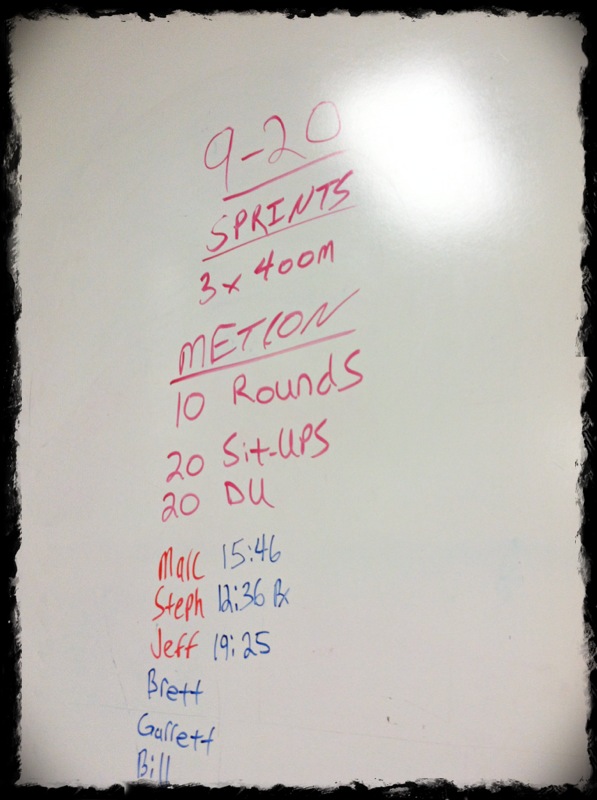 9-20
SPRINTS
3x 400m
METCON
10 Rounds
20 Sit-UPS
20 DU
Marc 15:46
Steph 12:36 Rx
Jeff 19:25
Brett
Garrett
Bill